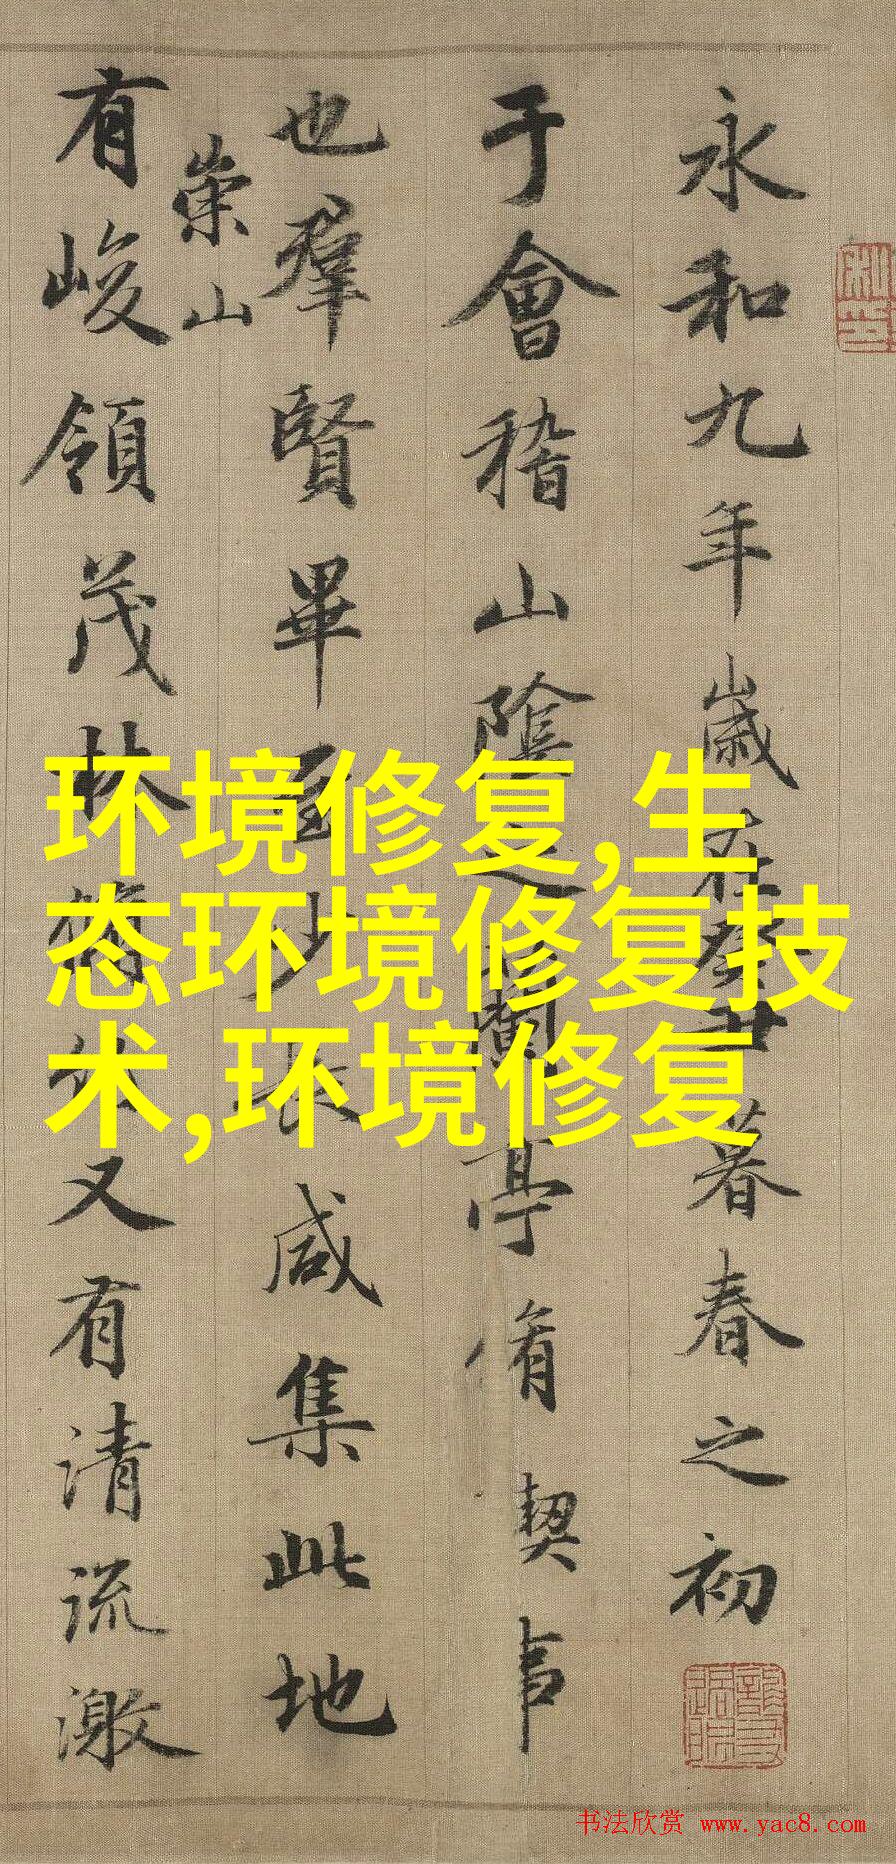 永和九年歲在癸丑暮春之初
于會稽山陰之蘭亭脩禊事
也羣賢畢至少長咸集此地
崇山
有峻領茂林脩竹又有清流激
环境修复,生
态环境修复技
术,环境修复
书法欣赏 www.yac8.com